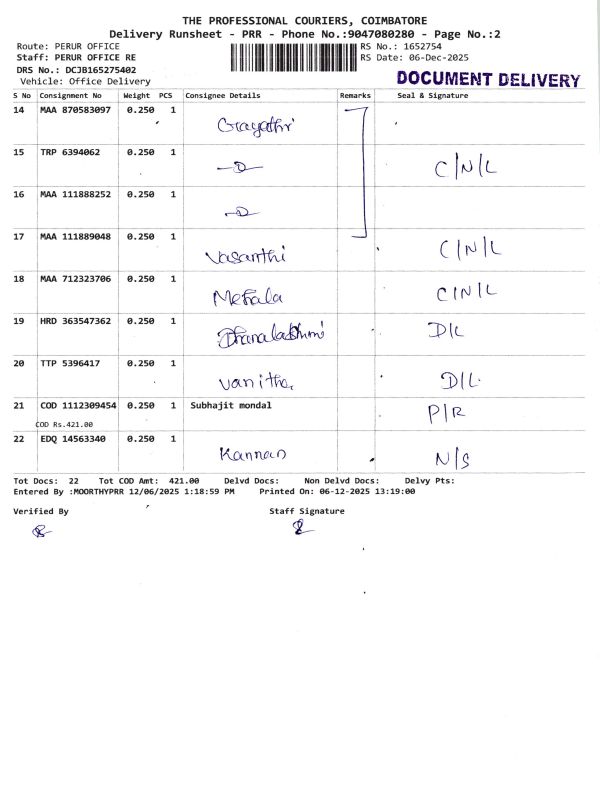 THE PROFESSIONAL COURIERS, COIMBATORE
Delivery Runsheet - PRR - Phone No.:9047080280 - Page No.:2
Route: PERUR OFFICE RS No.: 1652754
Staff: PERUR OFFICE RE RS Date: 06-Dec-2025
DRS No.: DCJB165275402
Vehicle: Office Delivery DOCUMENT DELIVERY
S No Consignment No Weight PCS Consignee Details Remarks Seal & Signature
14 MAA 870583097 0.250 1 Gayathri
15 TRP 6394062 0.250 1 C/N/L
16 MAA 111888252 0.250 1
17 MAA 111889048 0.250 1 Vasanthi C/N/L
18 MAA 712323706 0.250 1 Mekala C/N/L
19 HRD 363547362 0.250 1 Dhanalakshmi D/L
20 TTP 5396417 0.250 1 Vanitha D/L
21 COD 1112309454 0.250 1 Subhajit mondal P/R
COD Rs.421.00
22 EDQ 14563340 0.250 1 Kannan N/S
Tot Docs: 22 Tot COD Amt: 421.00 Delvd Docs: Non Delvd Docs: Delvy Pts:
Entered By :MOORTHYPRR 12/06/2025 1:18:59 PM Printed On: 06-12-2025 13:19:00
Verified By Staff Signature